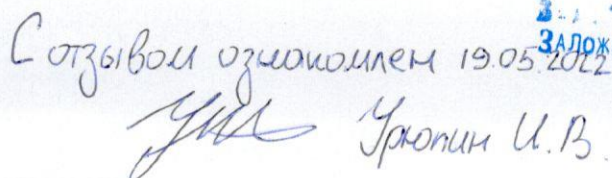 ЗАЛОЖ
С отзывом ознакомлен 19.05.2022
Урюпин И.В.